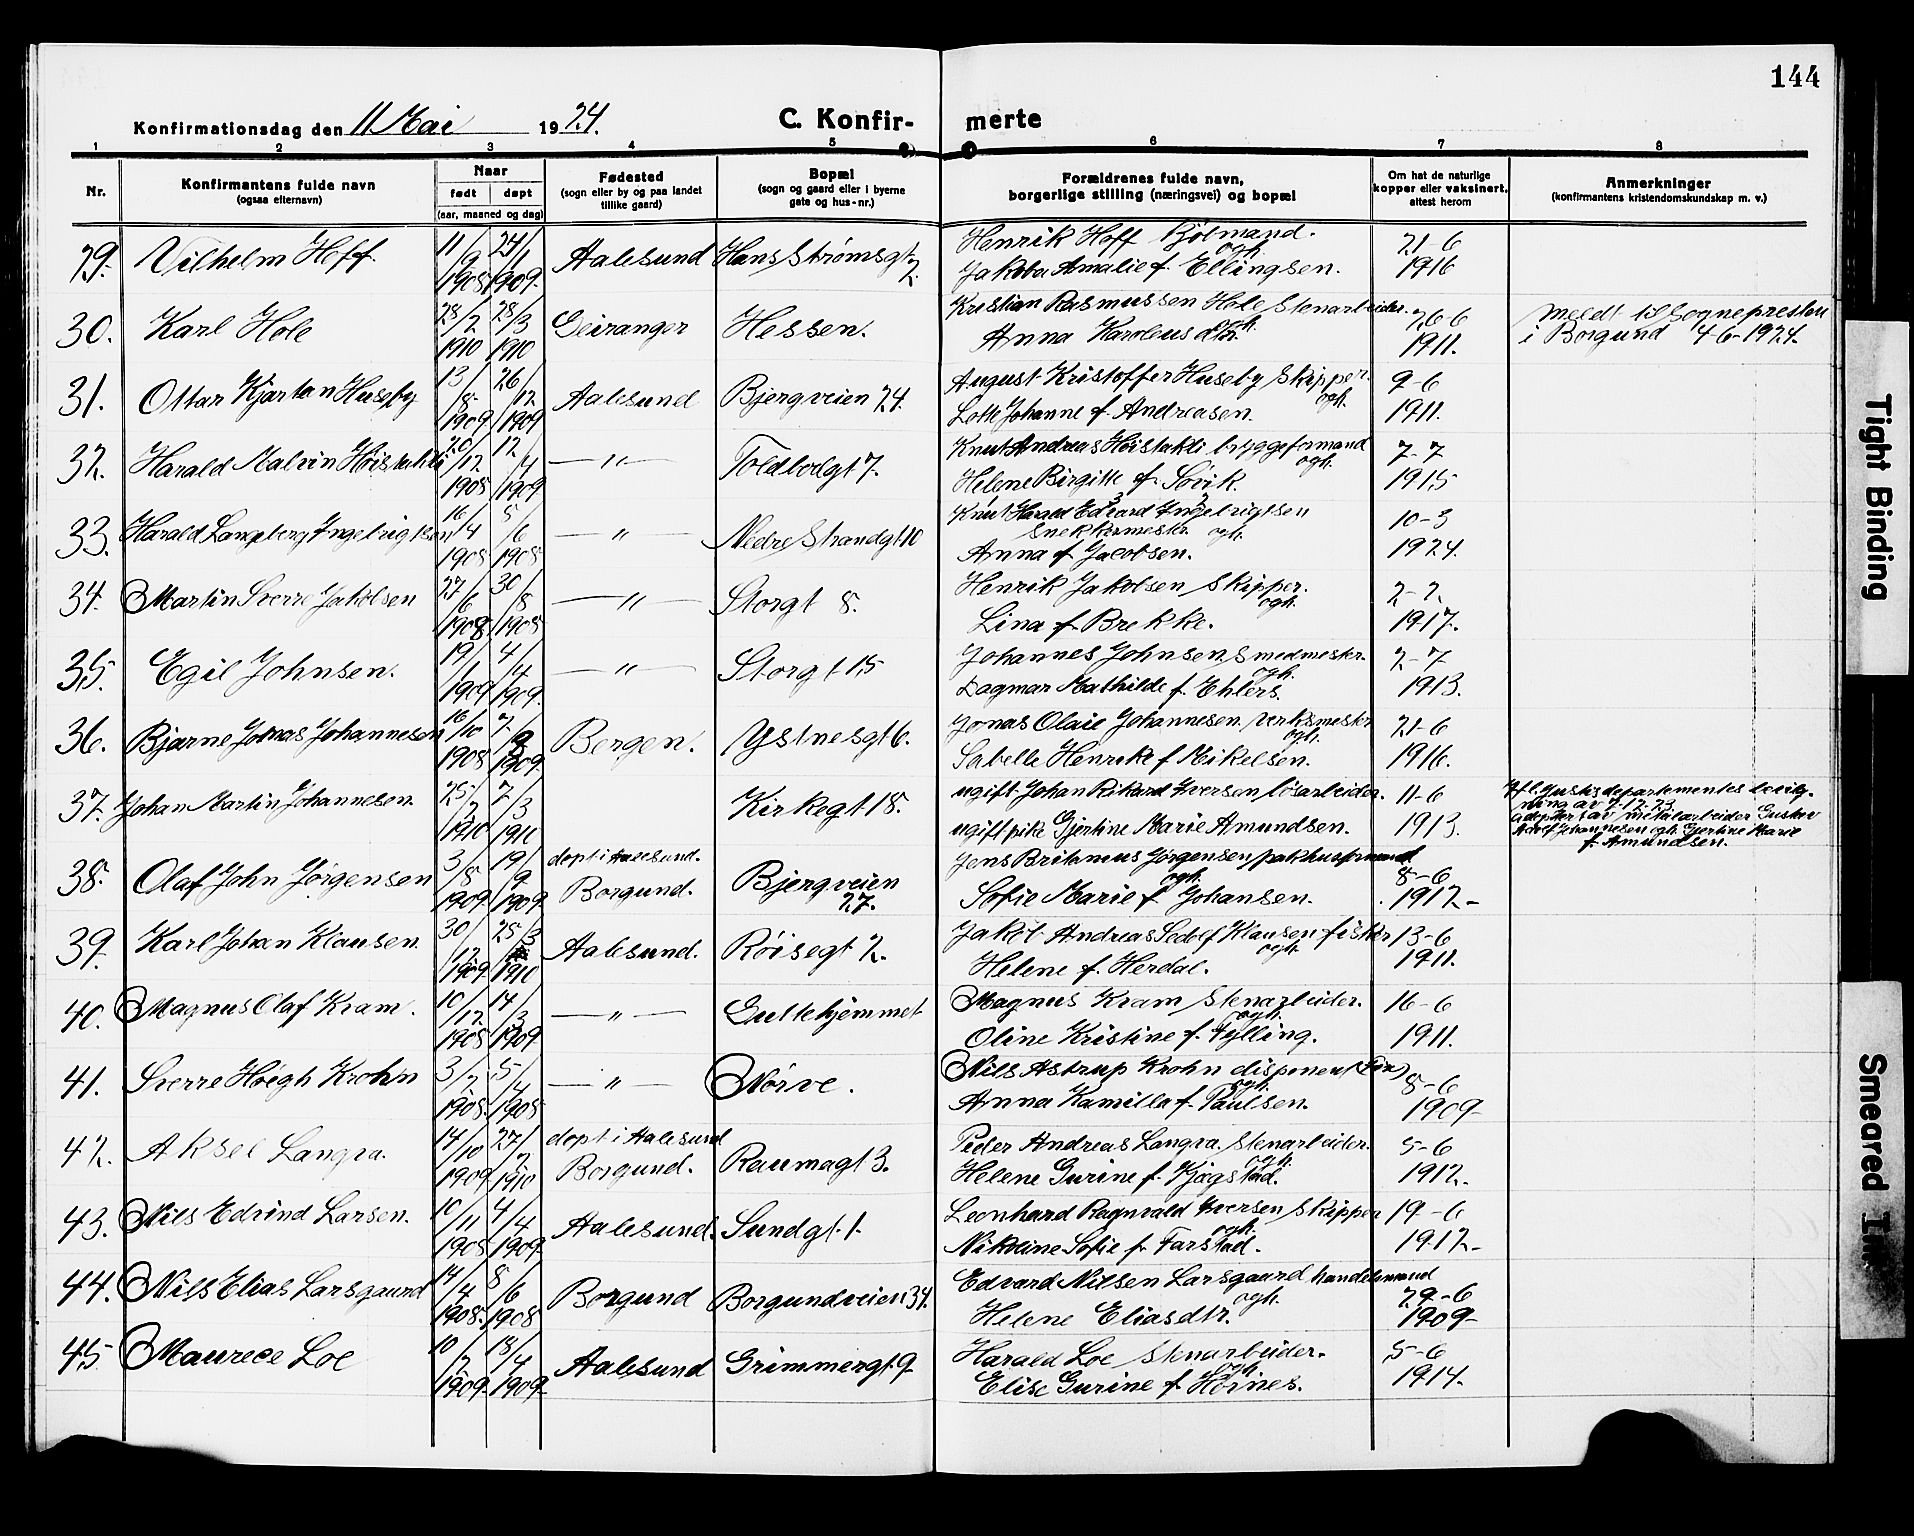 144
Konfirmationsdag den 11 Mai 1924.
C. Konfir- merte
1 2 3 4 5 6 7 8
Nr.
Konfirmantens fulde navn
(ogsaa efternavn)
Naar
født døpt
(aar, maaned og dag)
Fødested
(sogn eller by og paa landet
tillike gaard)
Bopæl
(sogn og gaard eller i byerne
gate og hus-nr.)
Forældrenes fulde navn,
borgerlige stilling (næringsvei) og bopæl
Om hat de naturlige
kopper eller vaksinert,
attest herom
Anmerkninger
(konfirmantens kristendomskundskap m. v.)
29. Vilhelm Hoff. 11/9 1908 24/1 1909. Aalesund Hans Strømsgt. 2. Henrik Hoff Bjølmand. ogh.
Jakoba Amalie f. Ellingsen. 21-6 1916
30. Karl Hole 28/2 1910 28/3 1910 Geiranger Hessen. Kristian Rasmussen Hole Stenarbeider. ogh.
Anna Karoleusdtr. 26-6 1911. Meldt til Sognepresten
i Borgund 4-6-1924.
31. Ottar Kjartan Huseby 13/8 1909 26/12 1909 Aalesund Bjergveien 24. August Kristoffer Huseby Skipper. ogh.
Lotte Johanne f. Andreasen. 9-6 1911.
32. Harald Malvin Høistakli 20/12 1908 12/4 1909 — " — Toldbodgt 7. Knut Andreas Høistakli bryggeformand ogh.
Helene Birgitte f. Søvik. 7-7 1915
33. Harald Langberg Ingebrigtsen 16/4 1908 5/6 1908 — " — Nedre Strandgt 10 Knut Harald Edvard Ingebrigtsen
Snekkermestr. ogh.
Anna f. Jacobsen. 10-3 1924.
34. Martin Sverre Jakobsen 27/6 1908 30/8 1908 — " — Storgt 8. Henrik Jakobsen Skipper. ogh.
Lina f. Brekke. 2-2. 1917.
35. Egil Johnsen. 19/1 1909 4/4 1909. — " — Storgt 15 Johannes Johnsen Smedmester. ogh.
Dagmar Mathilde f. Ehlers. 2-7 1913.
36. Bjarne Johnas Johannesen 16/10 1908 1909 Bergen. Ystnesgt 6. Jonas Olaie Johannesen. verksmestr ogh.
Sabelle Henrike f. Mikelsen. 21-6 1916.
37. Johan Martin Johannesen. 25/2 1910 2/3 1910 Kirkegt 18. ugift Johan Rikard Iversen løsarbeider.
ugift pike Gjertine Marie Amundsen. 11-6 1913. Ifl. Justisdepartementes bevilg-
ning av 7-12-23.
adoptert av metalarbeider Gustav
Adolf Johannesen ogh. Gjertine Marie
f. Amundsen.
38. Olaf John Jørgensen 3/8 1909. 19/9 1909 døpt i Aalesund.
Borgund. Bjergveien 27. Jens Britanius Jørgensen pakhusformand ogh.
Sofie Marie f. Johansen. 8-6 1912-
39. Karl Johan Klausen. 30/12 1909. 25/3 1910 Aalesund. Røisegt 2. Jakob Andreas Sedolf Klausen fisker ogh.
Helene f. Herdal. 13-6 1911.
40. Magnus Olaf Kram. 10/12 1908 14/3 1909 — " — Enkehjemmet Magnus Kram Stenarbeider. ogh.
Oline Kristine f. Fylling. 16-6 1911.
41. Sverre Høegh Krohn 3/2 1908. 5/4 1908 — " — Nørve. Nils Astrup Krohn disponent ogh.
Anna Kamilla f. Paulsen. 8-6 1909-
42. Aksel Langva. 14/10 1909 27/2 1910 døpt i Aalesund
Borgund. Raumagt 3. Peder Andreas Langva. Stenarbeider. ogh.
Helene Gurine f. Kjøgstad. 5-6 1912.
43. Nils Edvind Larsen. 10/11 1908 4/4 1909. Aalesund. Sundgt. 1. Leonhard Ragnvald Iversen Skipper ogh.
Nikoline Sofie f. Farstad. 19-6 1912-
44. Nils Elias Larsgaard 14/4 1908. 8/6 1908 Borgund Borgundveien 34. Edvard Nilsen Larsgaard handelsmand ogh.
Helene Eliasdtr. 29-6 1909-
45. Maurece Loe 10/2 1909 18/4 1909. Aalesund Grimmergt. 9 Harald Loe Stenarbeider. ogh.
Elise Gurine f. Hørnes. 5-6 1914.
Tight Binding
Smeared Ink